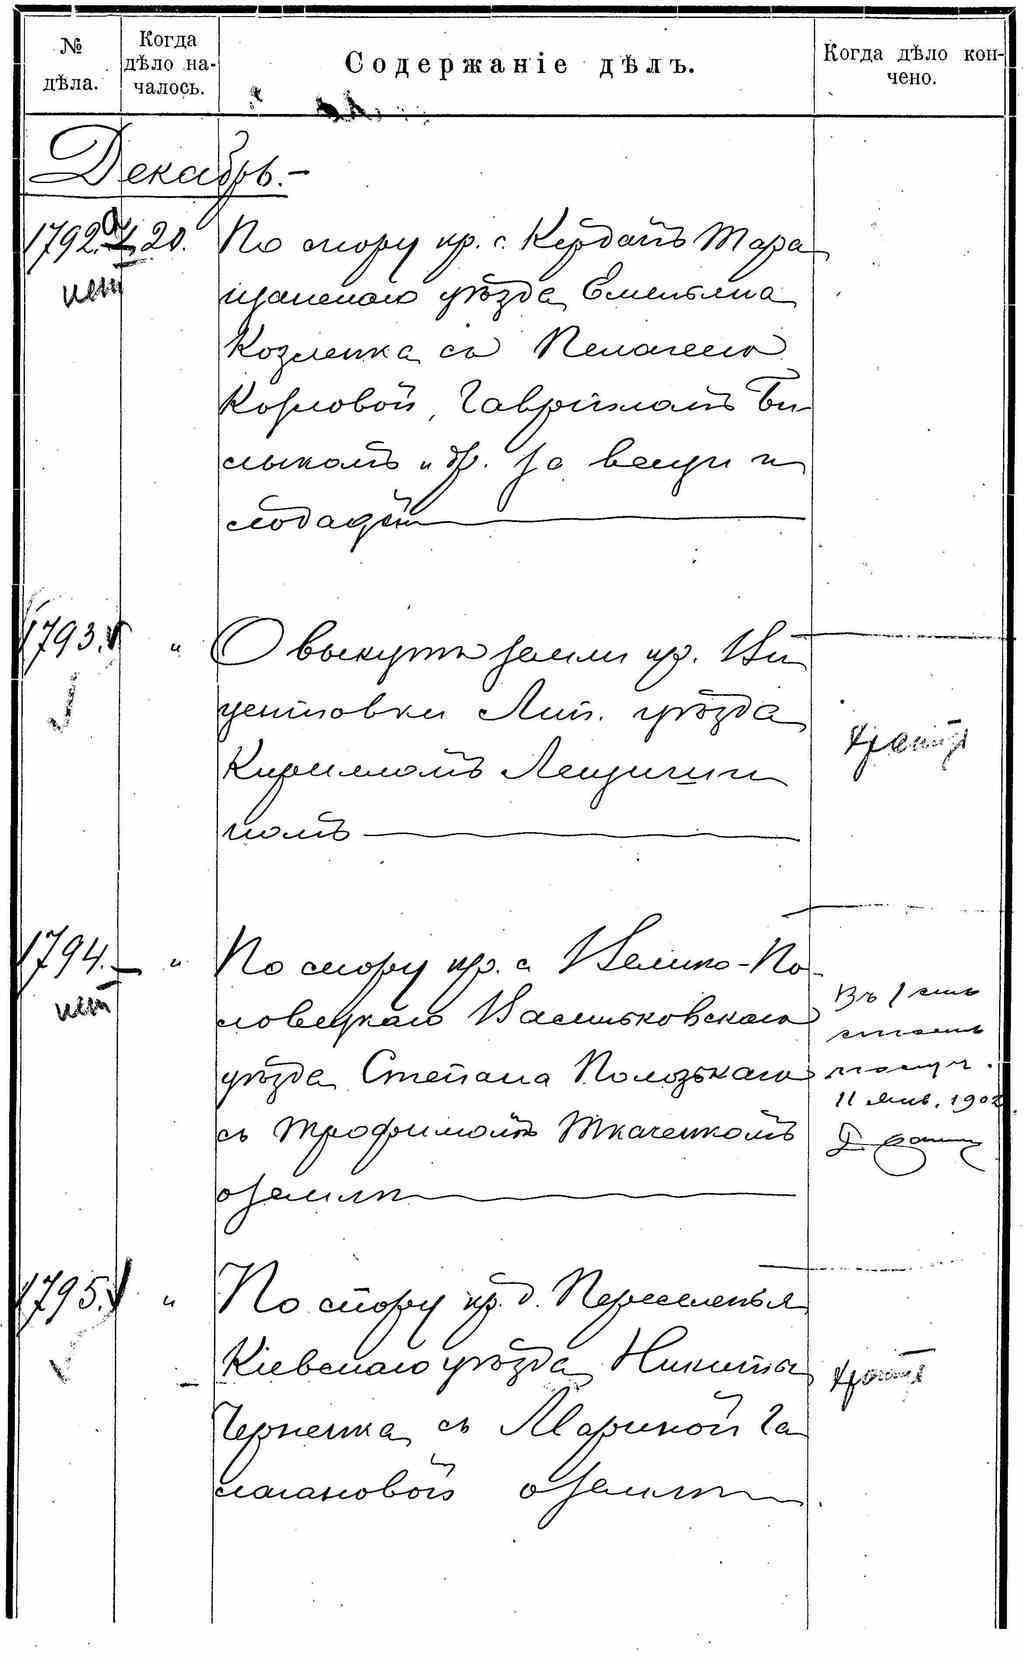 № дѣла.
Когда дѣло на-
чалось.
Содержаніе дѣлъ.
Когда дѣло кон-
чено.
Декабрь.-
1792. 20. По спору кр. с. Кердатъ Тара
нет щанскаго уѣзда Емельяна
Козленка съ Пелагеею
Козловой, Гавріиломъ Би
лыкомъ и др. за вещи и
1793. " О выкупѣ земли кр.
Лип. уѣзда
Кирилломъ Лещишин
комъ
1794. " По спору кр. с. Велико-По
нет ловецкаго Васильковскаго
уѣзда Степана Полозькаго
съ Трофимомъ Ткаченкомъ
о землѣ
Въ
11 Янв. 1902
1795. " По спору кр. д. Переселенья
Кіевскаго уѣзда Никиты
Черненка съ Мариной Га
лагановой о землѣ